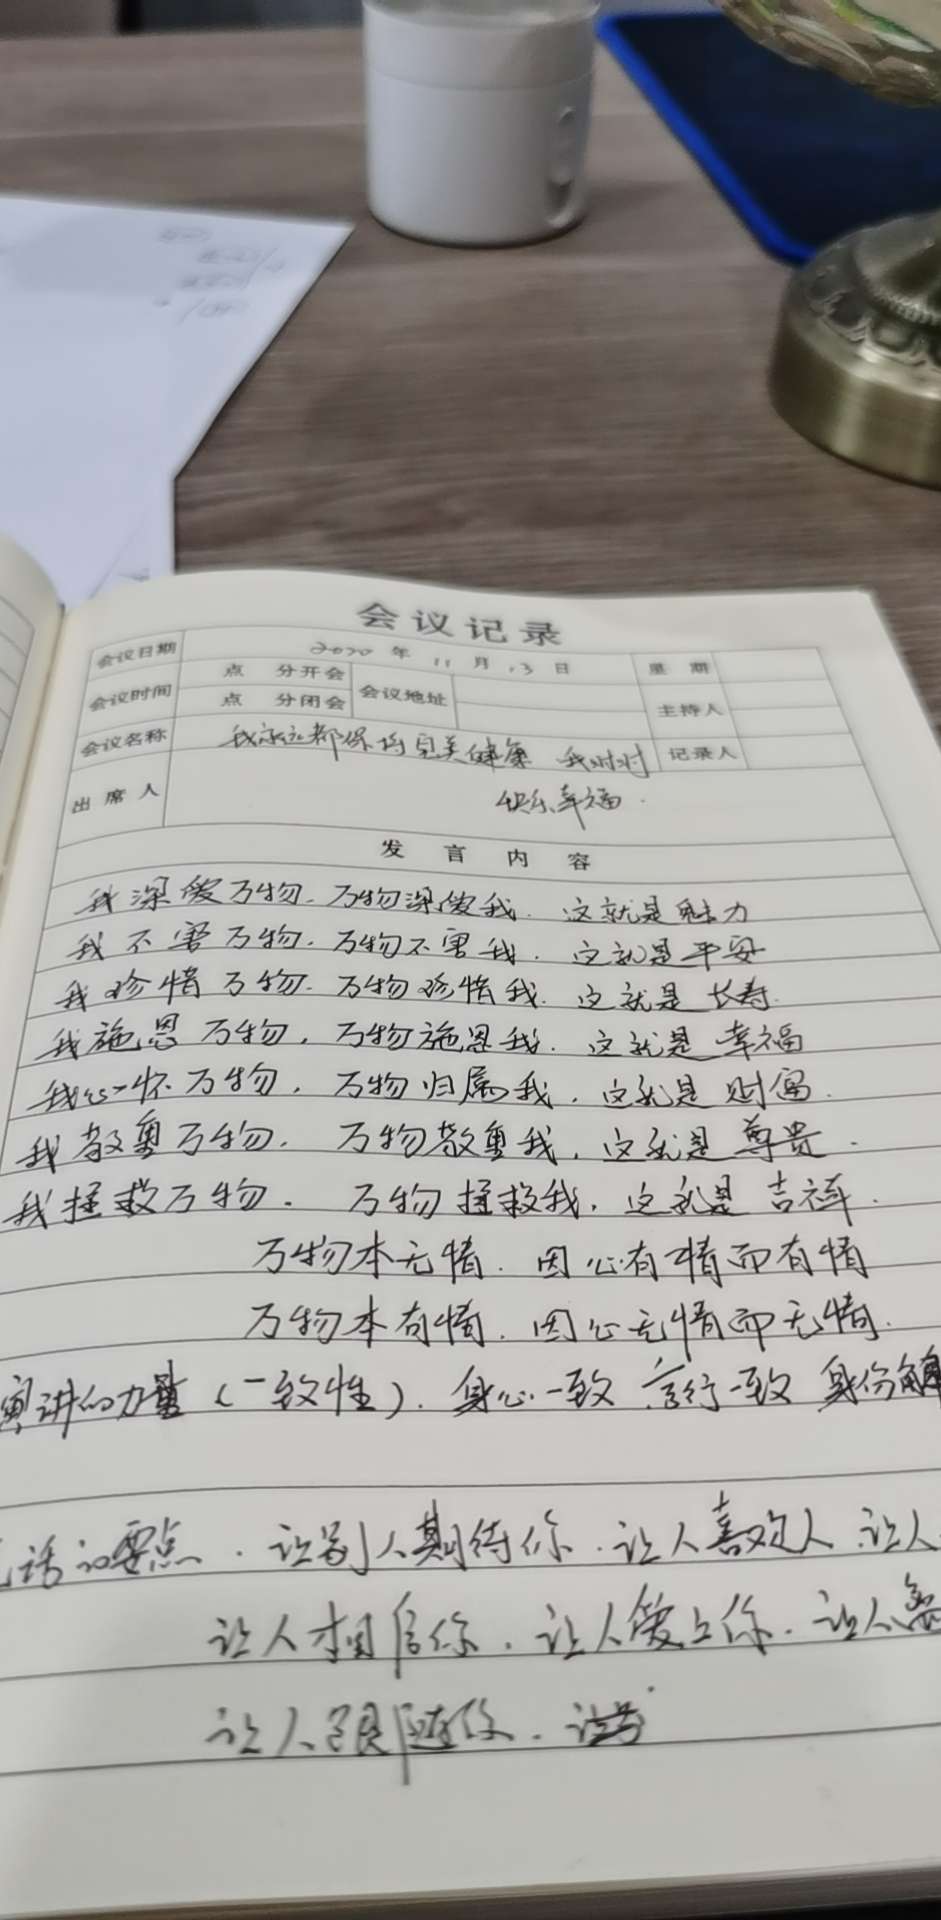 会议记录
会议日期 2020年 11月 13日 星期
会议时间 点 分开会 会议地址
点 分闭会 主持人
会议名称 我永远都保持完美健康 我时时 记录人
出席人 快乐幸福.
发言内容
我深爱万物. 万物深爱我. 这就是魅力
我不害万物. 万物不害我. 这就是平安
我珍惜万物. 万物珍惜我. 这就是长寿.
我施恩万物, 万物施恩我. 这就是幸福
我心怀万物, 万物归属我, 这就是财富.
我敬重万物. 万物敬重我, 这就是尊贵.
我拯救万物. 万物拯救我, 这就是吉祥.
万物本无情. 因心有情而有情
万物本有情. 因心无情而无情.
演讲的力量 (一致性). 身心一致 言行一致 身份
话的要点. 让别人期待你. 让人喜欢 让人
让人相信你. 让人爱上你. 让人
让人跟随你.